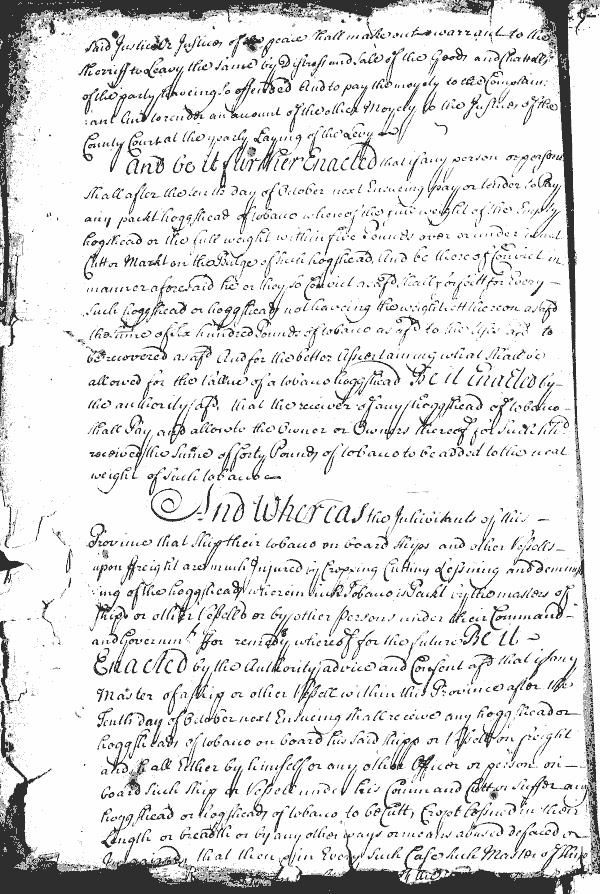 said Justice or Justices of the peace shall make out a warrant to the
Sherriff to Leavy the same by Distress and Sale of the Goods and Chattells
of the party haveing so offended And to pay the moyety to the Complain:
:ant And to render an amount of the other Moyety to the Justices of the
County Court at the yearly Laying of the Levy
And be it further Enacted that if any person or persons
shall after the tenth day of October next Ensueing pay or tender to Pay
any packt hoggshead of tobacco whereof the true weight of the Empty
hogshead or the full weight within five Pounds over or under is not
Cutt or Markt on the Bulge of such hogshead And be thereof Convict in
manner aforesaid he or they so Convict as afd shall forfeit for Every
such hoggshead or hoggsheads not haveing the weight sett thereon as afd
the sume of six hundred Pounds of tobacco as afd to the Uses afd to
be recovered as afd And for the better Assertaining what shall be
allowed for the Vallue of a tobacco hoggshead Be it Enacted by
the authority afd. that the receiver of any hoggshead of tobacco
shall Pay and allow to the Owner or Owners thereof for such hhd
received the Sume of forty Pounds of tobacco to be added to the neat
weight of such tobacco
And Whereas the Inhabitants of this
Province that ship their tobacco on board ships and other Vessells
upon freight are much Injured by Cropping Cutting Lessning and
:ing of the hoggsheads wherein such Tobacco is Packt by the masters of
ships or other Vessells or by other Persons under their Command
and Governmt. For remedy whereof for the future Be it
Enacted by the Authority advice and Consent afd that if any
Master of a ship or other Vessell within this Province after the
Tenth day of October next Ensueing shall receive any hoggshead or
hoggsheads of tobacco on board his said shipp or Vessell on freight
and shall Either by himself or any other Officer or person on
board such ship or Vessell under his Command Cutt or suffer any
hoggshead or hoggsheads of tobacco to be Cutt Cropt Lessned in their
Length or breadth or by any other ways or means abused defaced or
that then in Every such Case such Master of ship